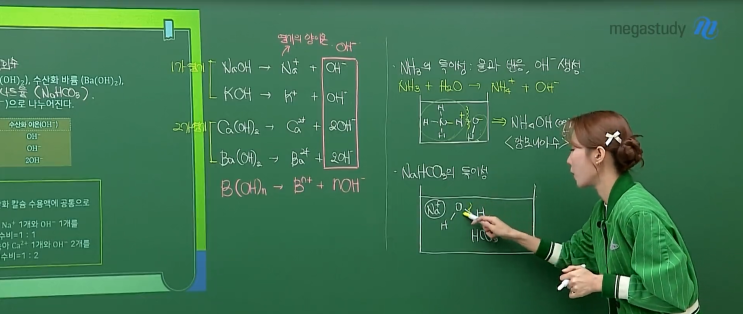 megastudy
(OH)₂), 수산화 바륨 (Ba(OH)₂),
(NaHCO₃).
)으로 나누어진다.
수산화 이온(OH⁻)
OH⁻
OH⁻
2OH⁻
칼슘 수용액에 공통으로
Na⁺ 1개와 OH⁻ 1개를
수비=1 : 1
Ca²⁺ 1개와 OH⁻ 2개를
수비=1 : 2
염기의 양이온
OH⁻
1가 염기
NaOH → Na⁺ + OH⁻
KOH → K⁺ + OH⁻
2가 염기
Ca(OH)₂ → Ca²⁺ + 2OH⁻
Ba(OH)₂ → Ba²⁺ + 2OH⁻
B(OH)n → Bⁿ⁺ + nOH⁻
· NH₃의 특이성: 물과 반응, OH⁻ 생성
NH₃ + H₂O → NH₄⁺ + OH⁻
H
H N H
H
⇒ NH₄OH
<암모니아수
· NaHCO₃의 특이성
Na⁺ O H
H